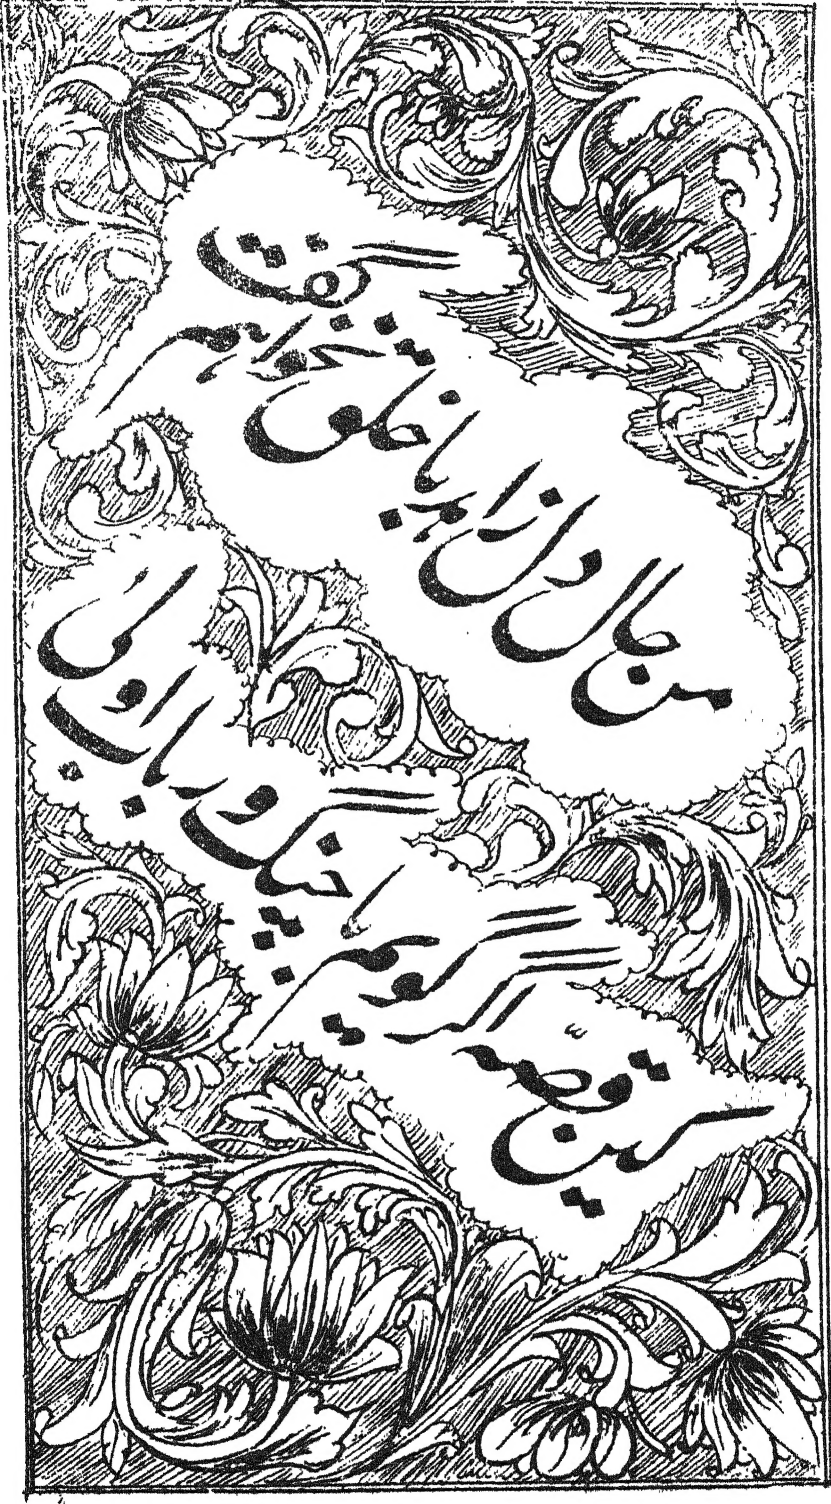 من حال دل زاهد با خلق نخواهم گفت
کین قصّه اگر گویم با چنگ و رباب اولی